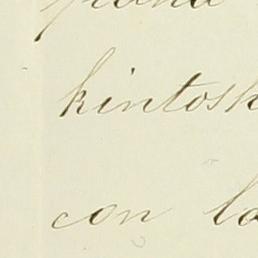 kintosh
con la